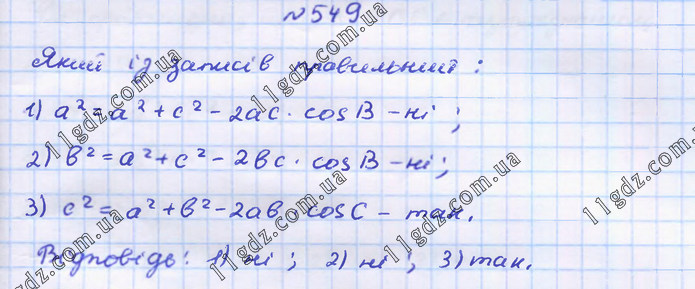 №549
Який із записів правильний:
1) a² = a² + c² - 2ac · cos B - ні;
2) b² = a² + c² - 2bc · cos B - ні;
3) c² = a² + b² - 2ab · cos C - так.
Відповідь: 1) ні; 2) ні; 3) так.
11gdz.com.ua
11gdz.com.ua
11gdz.com.ua
11gdz.com.ua
11gdz.com.ua
11gdz.com.ua